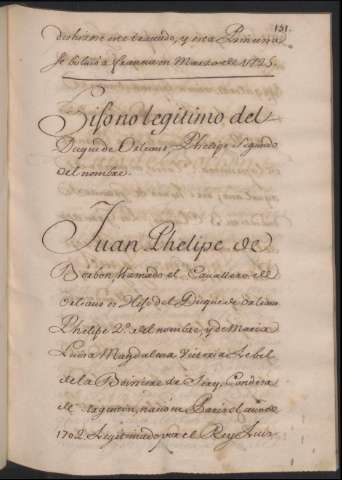 151.
deshizo este tratado, y esta Princesa
se bolvio a Francia en Marzo de 1725.
Hijo no legitimo del
Duque de Orleans, Phelipe Segundo
del nombre.
Juan Phelipe de
Borbon, llamado el Cavallero de
Orleans es Hijo del Duque de Orleans
Phelipe 2º. del nombre, y de Maria
Luisa Magdalena Victoria Le bel
de la Boissiere de Sery, Condesa
de Argenton, nacio en Paris el año de
1702. Legitimado por el Rey Luis